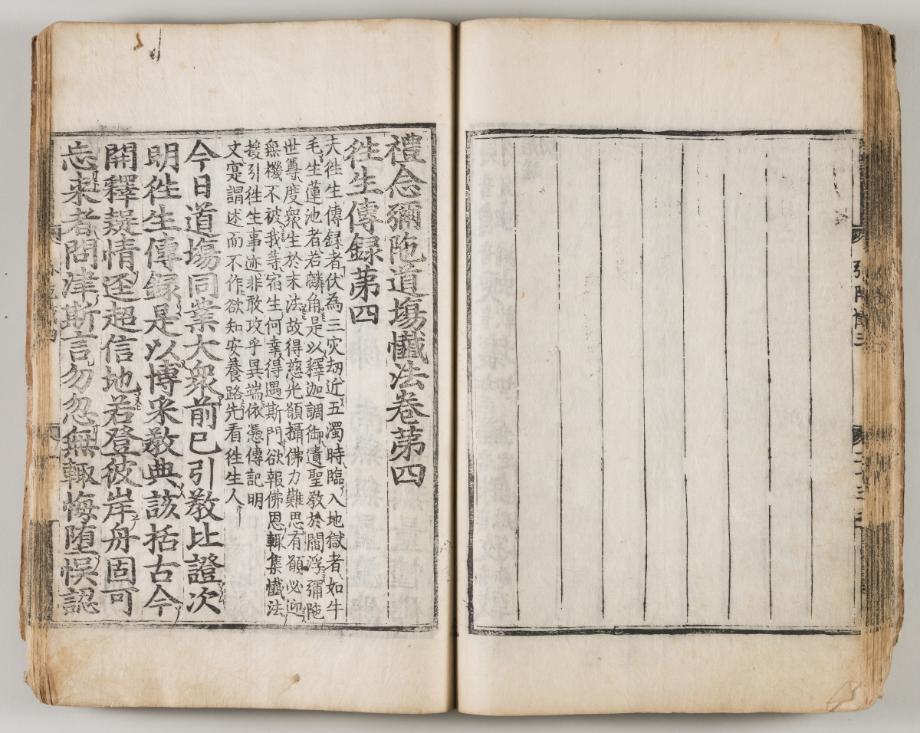 禮念彌陁道塲懴法卷第四
徃生傳録第四
夫徃生傳録者伏為三灾刼近五濁時臨入地獄者如牛
毛生蓮池者若麟角是以釋迦調御遺聖教於閻浮彌陁
世尊度衆生於末法故得慈光韻攝佛力難思有願必迎
無機不被我等宿生何幸得遇斯門欲報佛恩輯集懴法
援引徃生事迹非敢攻乎異端依憑傳記明
文寔謂述而不作欲知安養路先看徃生人
今日道塲同業大衆前已引教比證次
明徃生傳録是以博采教典該括古今
開釋疑情逕超信地若登彼岸舟固可
忘來者問津斯言勿忽無輙悔墮悞認